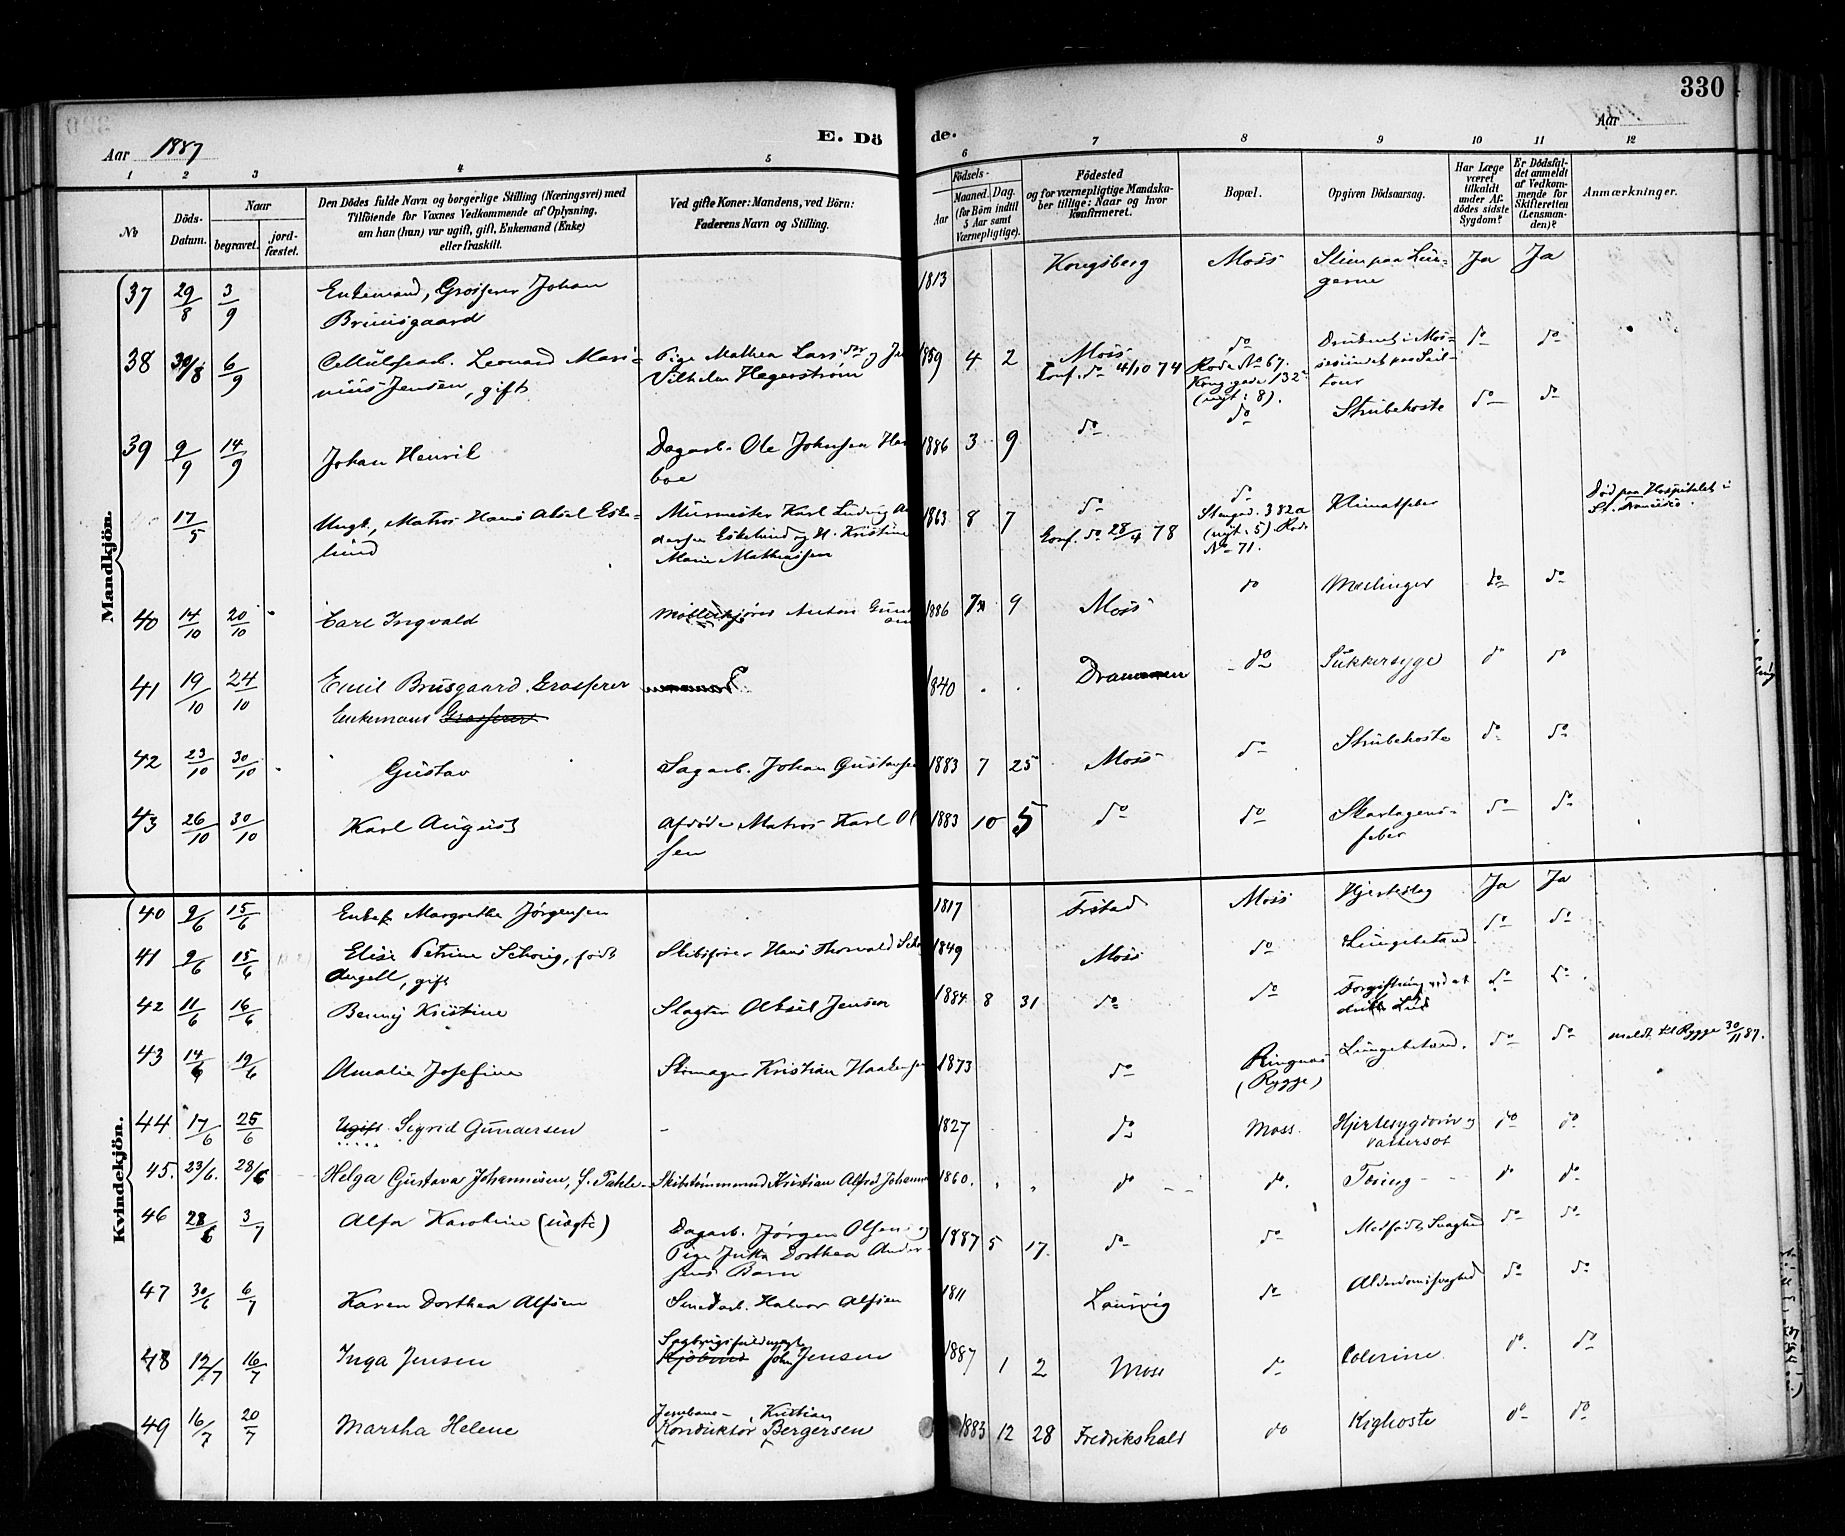 330
E. Dö de.
Aar 1887
Aar
1 2 3 4 5 6 7 8 9 10 11 12
No
Döds-Datum.
Naar
begravet.
jord-fæstet.
Den Dödes fulde Navn og borgerlige Stilling (Næringsvei) med
Tilföiende for Voxnes Vedkommende af Oplysning,
om han (hun) var ugift, gift, Enkemand (Enke)
eller fraskilt.
Ved gifte Koner: Mandens, ved Börn:
Faderens Navn og Stilling.
Födsels-
Aar
Maaned. Dag.
(for Börn indtil
5 Aar samt
Værnepligtige).
Födested
og for værnepligtige Mandska-
ber tillige: Naar og hvor
konfirmeret.
Bopæl.
Opgiven Dödsaarsag.
Har Læge
været
tilkaldt
under Af-
dödes sidste
Sygdom?
Er Dödsfal-
det anmeldt
af Vedkom-
mende for
Skifteretten
(Lensman-
den)?
Anmærkninger.
Mandkjön.
37 29/8 3/9 Enkemand, Grosserer Johan 1813 Kongsberg Moss Slim paa Lun- Ja Ja
Bruusgaard gerne
38 30/8 6/9 Leonard Mari- Pige Mathea Lars dtr og 1859 4 2 Moss do do do
nius Jensen, gift Vilhelm Hegerström Conf. do 4/10 74 Rode No 67.
Kong.gade 132
(nyt: 8).
39 9/9 14/9 Johan Henrik Dagarb. Ole Johnsen 1886 3 9 do do Strubehoste do do
boe
17/5 Ungk., Matros Hans Aksel Eske- Murmester Karl Ludvig 1863 8 7 do do Klimatfeber Död paa Hospitalet i
lund Eskelund og H. Kristine Conf. do 28/4 78 382a St. Francisco.
Marie Mathiassen (nyt: 5) Rode
No 71.
40 14/10 20/10 Carl Ingvald Anton 1886 7 9 Moss do Mæslinger do do
41 19/10 24/10 Emil Brusgaard. Grosserer 1840 Drammen do Sukkersyge do do
Enkemand Grosserer
42 23/10 30/10 Gustav Sagarb. Johan Gustavsen 1883 7 25 Moss do Strubehoste do do
43 26/10 30/10 Karl August Afdöde Matros Karl Ol 1883 10 5 do do Skarlagens- do do
sen feber
Kvindekjön.
40 9/6 15/6 Enke Margrethe Jørgensen 1817 Moss Hjerteslag Ja Ja
41 9/6 15/6 Elise Petrine Schou, födt Skibsförer Hans Thorvald 1849 Moss do Lungebetænd. do do
Angell, gift
42 11/6 16/6 Benny Kristine Slagter Aksel Jensen 1884 8 31 do do Forgiftning ved at do do
drikke Lud
43 14/6 19/6 Amalie Josefine Skomager Kristian 1873 do Ringnæs Lungebetænd. do do meldt til Rygge 30/11 87.
(Rygge)
44 17/6 25/6 Ugift Sigrid Gundersen - 1827 do Moss Hjertesygdom og do do
vattersot
45. 23/6. 28/6 Helga Gustava Johannesen, f. Pahle Skibstömmermand Kristian Alfred Johannes 1860. do do. Tæring do do
46 28/6 3/7 Alfa Karoline (uægte) Dagarb. Jørgen Olsen og 1887 5 17. do do Medfödt Svaghed do do
Pige Jutta Dorthea Ander-
sens Barn
47 30/6 6/7 Karen Dorthea Alfsen Smedarb. Halvor Alfsen 1811 Laurvig do Alderdomssvaghed do do
Sagbrugsfuldmægt.
48 12/7 16/7 Inga Jensen John Jensen 1887 1 2 Moss do Colerine do. do
Jernbane- Kristian
49 16/7 20/7 Martha Helene Konduktör Bergersen 1883 12 28 Fredrikshald do Kighoste do do